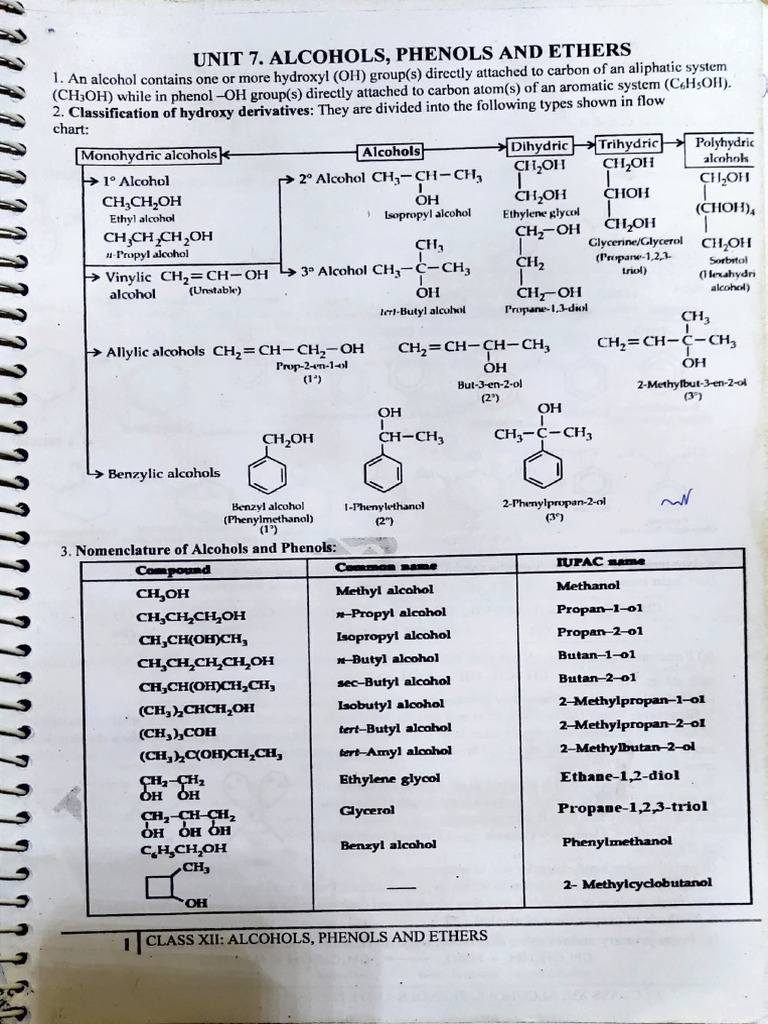 UNIT 7. ALCOHOLS, PHENOLS AND ETHERS
1. An alcohol contains one or more hydroxyl (OH) group(s) directly attached to carbon of an aliphatic system
(CH₃OH) while in phenol –OH group(s) directly attached to carbon atom(s) of an aromatic system (C₆H₅OH).
2. Classification of hydroxy derivatives: They are divided into the following types shown in flow
chart:
Monohydric alcohols
Alcohols
Dihydric
Trihydric
Polyhydric
alcohols
1° Alcohol
CH₃CH₂OH
Ethyl alcohol
CH₃CH₂CH₂OH
n-Propyl alcohol
2° Alcohol CH₃—CH—CH₃
OH
Isopropyl alcohol
CH₂OH
CH₂OH
Ethylene glycol
CH₂—OH
CH₂
CH₂—OH
Propane-1,3-diol
CH₂OH
CHOH
CH₂OH
Glycerine/Glycerol
(Propane-1,2,3-
triol)
CH₂OH
(CHOH)₄
CH₂OH
Sorbitol
(Hexahydri
alcohol)
Vinylic CH₂=CH—OH
alcohol (Unstable)
CH₃
3° Alcohol CH₃—C—CH₃
OH
tert-Butyl alcohol
Allylic alcohols CH₂=CH—CH₂—OH
Prop-2-en-1-ol
(1°)
CH₂=CH—CH—CH₃
OH
But-3-en-2-ol
(2°)
CH₃
CH₂=CH—C—CH₃
OH
2-Methylbut-3-en-2-ol
(3°)
Benzylic alcohols
CH₂OH
Benzyl alcohol
(Phenylmethanol)
(1°)
OH
CH—CH₃
1-Phenylethanol
(2°)
OH
CH₃—C—CH₃
2-Phenylpropan-2-ol
(3°)
3. Nomenclature of Alcohols and Phenols:
Compound Common name IUPAC name
CH₃OH Methyl alcohol Methanol
CH₃CH₂CH₂OH n–Propyl alcohol Propan–1–ol
CH₃CH(OH)CH₃ Isopropyl alcohol Propan–2–ol
CH₃CH₂CH₂CH₂OH n–Butyl alcohol Butan–1–ol
CH₃CH(OH)CH₂CH₃ sec–Butyl alcohol Butan–2–ol
(CH₃)₂CHCH₂OH Isobutyl alcohol 2–Methylpropan–1–ol
(CH₃)₃COH tert–Butyl alcohol 2–Methylpropan–2–ol
(CH₃)₂C(OH)CH₂CH₃ tert–Amyl alcohol 2–Methylbutan–2–ol
CH₂–CH₂ Ethylene glycol Ethane–1,2–diol
OH OH
CH₂–CH–CH₂ Glycerol Propane–1,2,3–triol
OH OH OH
C₆H₅CH₂OH Benzyl alcohol Phenylmethanol
CH₃
OH — 2– Methylcyclobutanol
1 CLASS XII: ALCOHOLS, PHENOLS AND ETHERS